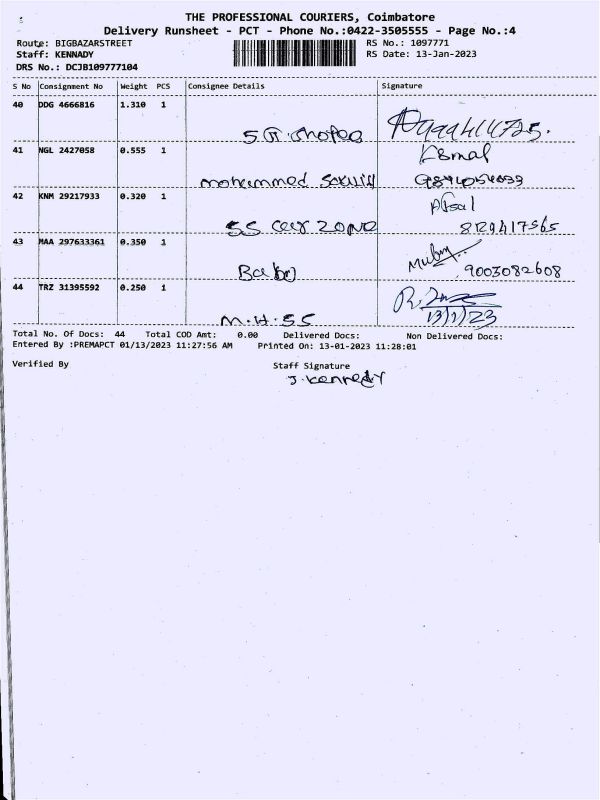 THE PROFESSIONAL COURIERS, Coimbatore
Delivery Runsheet - PCT - Phone No.:0422-3505555 - Page No.:4
Route: BIGBAZARSTREET RS No.: 1097771
Staff: KENNADY RS Date: 13-Jan-2023
DRS No.: DCJB109777104
S No Consignment No Weight PCS Consignee Details Signature
40 DDG 4666816 1.310 1
41 NGL 2427058 0.555 1
mohammed
42 KNM 29217933 0.320 1 Afsal
SS car zone 8129417565
43 MAA 297633361 0.350 1
Babu 9003082608
44 TRZ 31395592 0.250 1
M.H.SS 13/1/23
Total No. Of Docs: 44 Total COD Amt: 0.00 Delivered Docs: Non Delivered Docs:
Entered By :PREMAPCT 01/13/2023 11:27:56 AM Printed On: 13-01-2023 11:28:01
Verified By Staff Signature
J. Kennedy